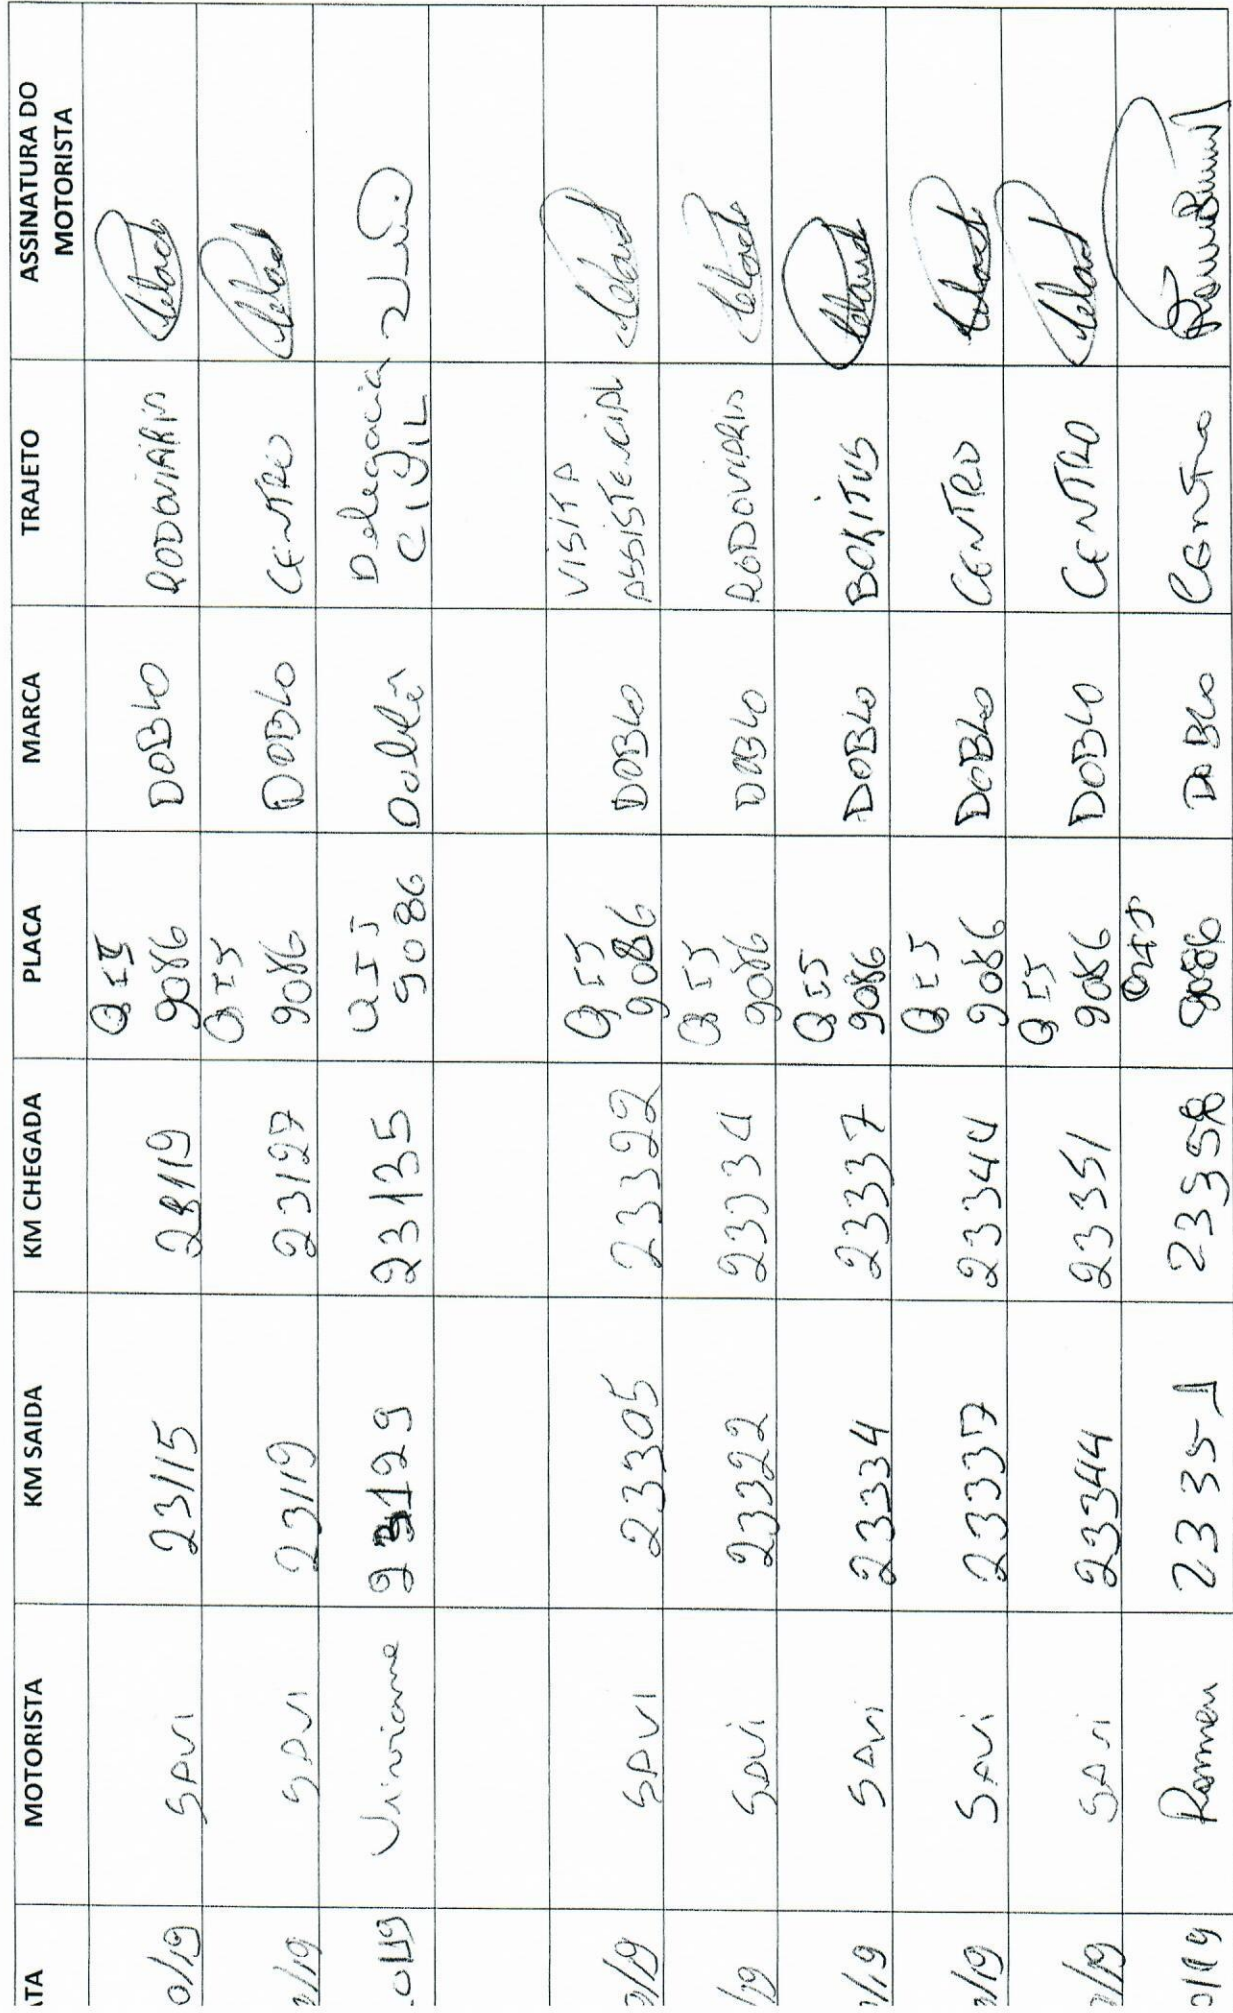 ATA MOTORISTA KM SAIDA KM CHEGADA PLACA MARCA TRAJETO ASSINATURA DO MOTORISTA
0/19 SAVI 23115 23119 QIJ 9086 DOBLO RODOVIÁRIA
0/19 SAVI 23119 23127 QIJ 9086 DOBLO CENTRO
0/19 Viviane 23129 23135 QIJ 9086 Doblô Delegacia CIVIL
0/19 SAVI 23305 23322 QIJ 9086 DOBLO VISITA ASSISTENCIAL
/19 SAVI 23322 23334 QIJ 9086 DOBLO RODOVIARIA
0/19 SAVI 23334 23337 QIJ 9086 DOBLO
0/19 SAVI 23337 23344 QIJ 9086 DOBLO CENTRO
0/19 SAVI 23344 23351 QIJ 9086 DOBLO CENTRO
0/19 23351 23358 9086 DOBLO Centro